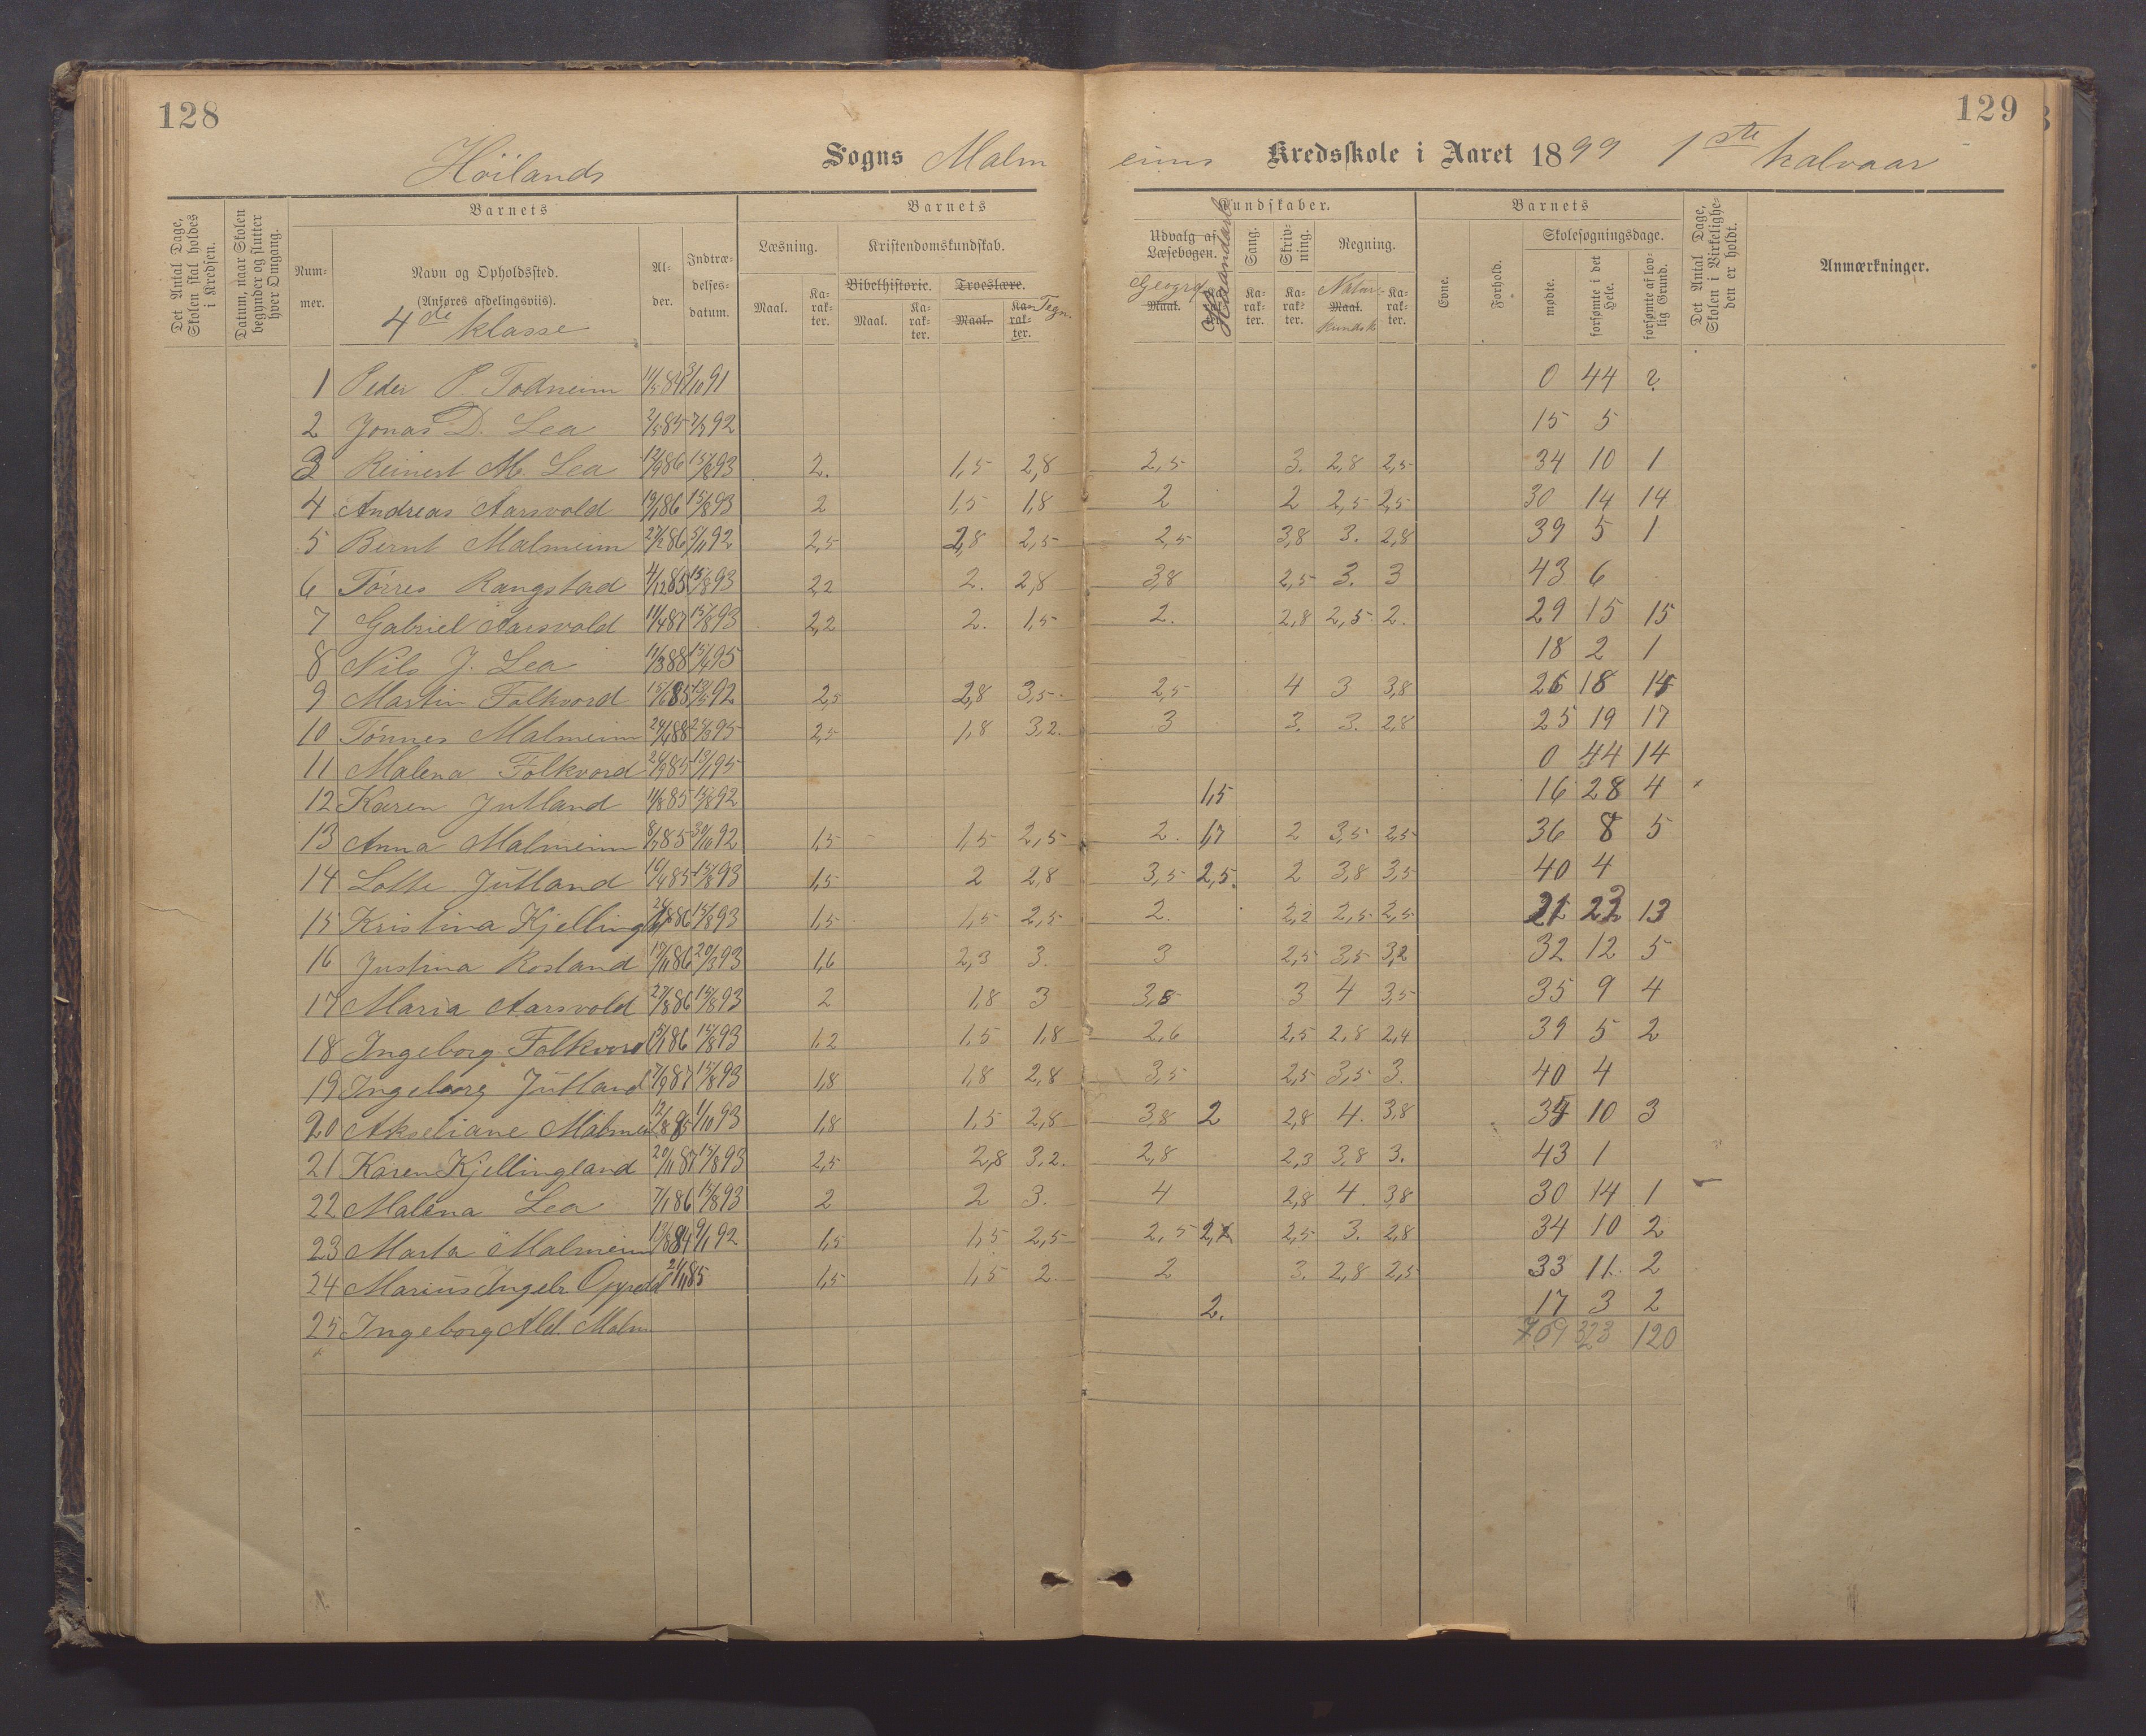 128
129
Höilands Sogns Malm eims Kredsskole i Aaret 1899 1ste halvaar
Det Antal Dage, Skolen skal holdes i Kredsen.
Datum, naar Skolen begynder og slutter hver Omgang.
Barnets
Barnets
Kundskaber.
Barnets
Det Antal Dage, Skolen i Virkelighe- den er holdt.
Num- mer.
Navn og Opholdssted.
(Anføres afdelingsviis).
4de klasse
Al- der.
Indtræ- delses- datum.
Læsning.
Kristendomskundskab.
Bibelhistorie.
Troeslære.
Maal.
Ka- rak- ter.
Maal.
Ka- rak- ter.
Maal.
Ka- rak- ter.
Tegn.
Udvalg af Læsebogen.
Geogra
Maal.
Haandarb
Sang.
Ka- rak- ter.
Skriv- ning.
Ka- rak- ter.
Regning.
Natur-
Maal.
kundsk
Ka- rak- ter.
Evne.
Forhold.
Skolesøgningsdage.
mødte.
forsømte i det Hele.
forsømte af lov- lig Grund.
Anmærkninger.
1 Peder P. Todneim 11/5 84 3/10 91 0 44 2
2 Jonas D. Lea 2/5 85 7/7 92 15 5
3 Reinert M. Lea 12/9 86 15/8 93 2. 1,5 2,8 2,5 3. 2,8 2,5 34 10 1
4 Andreas Aarsvold 19/1 86 15/8 93 2 1,5 1,8 2 2 2,5 2,5 30 14 14
5 Bernt Malmeim 27/2 86 5/11 92 2,5 2,8 2,5 2,5 3,8 3. 2,8 39 5 1
6 Törres Rangstad 4/12 85 15/8 93 2,2 2. 2,8 3,8 2,5 3. 3 43 6
7 Gabriel Aarsvold 11/4 87 15/8 93 2,2 2. 1,5 2. 2,8 2,5 2. 29 15 15
8 Nils J. Lea 11/3 88 15/1 95 18 2 1
9 Martin Folkvord 15/6 85 13/5 92 2,5 2,8 3,5 2,5 4 3 3,8 26 18 14
10 Tönnes Malmeim 24/1 88 25/3 95 2,5 1,8 3,2. 3 3. 3. 2,8 25 19 17
11 Malena Folkvord 26/9 85 13/1 95 0 44 14
12 Karen Jutland 11/8 85 15/8 92 1,5 16 28 4
13 Anna Malmeim 8/7 85 30/10 92 1,5 1,5 2,5 2. 1,7 2 3,5 2,5 36 8 5
14 Lotte Jutland 10/4 85 15/8 93 1,5 2 2,8 3,5 2,5. 2 3,8 3,5 40 4
15 Kristina Kjellingl 86 15/8 93 1,5 1,5 2,5 2. 2,2 2,5 2,5 21 23 13
16 Justina Rosland 17/11 86 20/3 93 1,6 2,3 3. 3 2,5 3,5 3,2 32 12 5
17 Maria Aarsvold 27/8 86 15/8 93 2 1,8 3 3,8 3 4 3,5 35 9 4
18 Ingeborg Folkvord 15/1 86 15/8 93 1,2 1,5 1,8 2,6 2,5 2,8 2,4 39 5 2
19 Ingeborg Jutland 7/9 87 15/8 93 1,8 1,8 2,8 3,5 2,5 3,5 3. 40 4
20 Akseliane Malmei 12/8 85 1/10 93 1,8 1,5 2,8 3,8 2 2,8 4. 3,8 34 10 3
21 Karen Kjellingland 20/11 87 15/8 93 2,5 2,8 3,2. 2,8 2,3 3,8 3. 43 1
22 Malena Lea 7/1 86 15/8 93 2 2 3. 4 2,8 4. 3,8 30 14 1
23 Marta Malmeim 13/8 84 9/1 92 1,5 1,5 2,5 2,5 2, 2,5 3. 2,8 34 10 2
24 Marius Ingebr. Oppedal 21/11 85 1,5 1,5 2. 2 3. 2,8 2,5 33 11. 2
25 Ingeborg Ald. Malm 2. 17 3 2
709 323 120